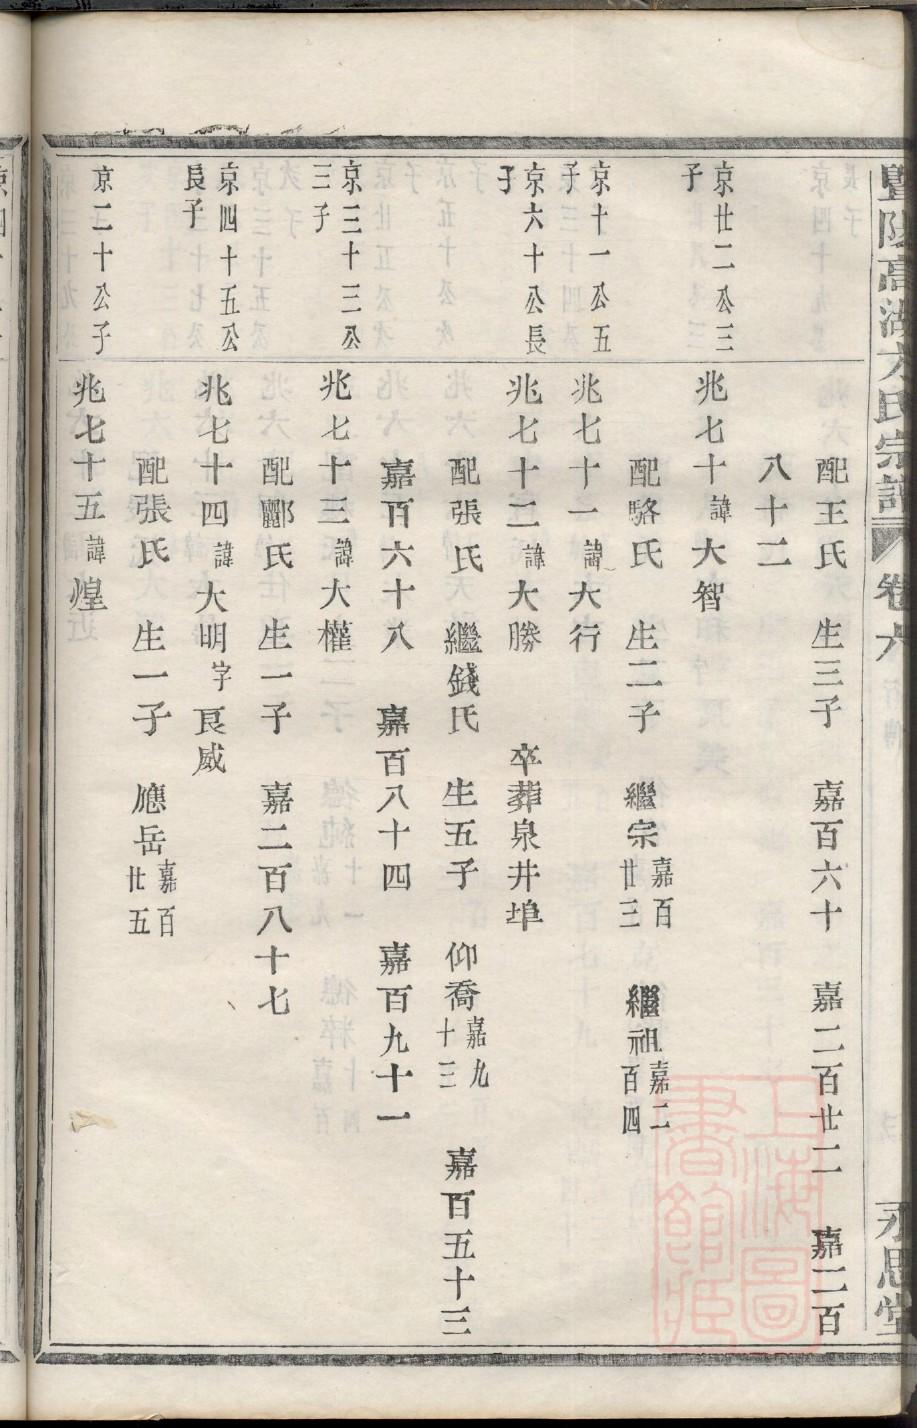 暨陽高湖方氏宗譜 卷六 行傳 永思堂
配王氏 生三子 嘉百六十 嘉二百廿二 嘉二百
八十二
京廿二公三子
兆七十諱大智
配駱氏 生二子 繼宗嘉百廿三 繼祖嘉二百四
京十一公五子
兆七十一諱大行
京六十公長子
兆七十二諱大勝 卒葬泉井埠
配張氏 繼錢氏 生五子 仰喬嘉九十三 嘉百五十三
嘉百六十八 嘉百八十四 嘉百九十一
京三十三公三子
兆七十三諱大權
配酈氏 生一子 嘉二百八十七
京四十五公長子
兆七十四諱大明字良威
配張氏 生一子 應岳嘉百廿五
京二十公子
兆七十五諱煌
上海圖書館藏